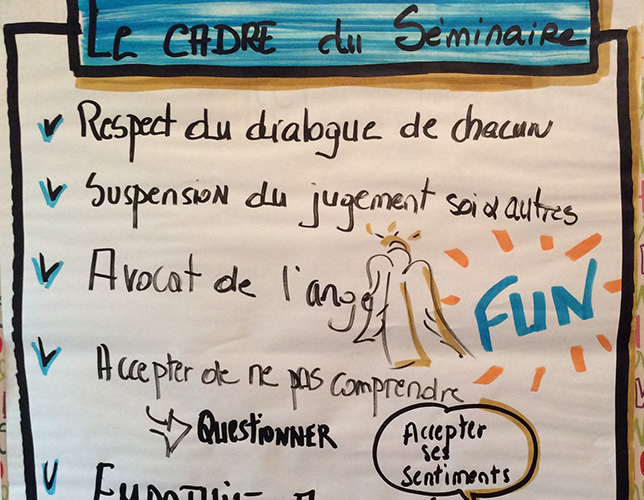 LE CADRE du Séminaire
Respect du dialogue de chacun
Suspension du jugement soi & autres
Avocat de l'ange
FUN
Accepter de ne pas comprendre
QUESTIONNER
Accepter
ses
sentiments